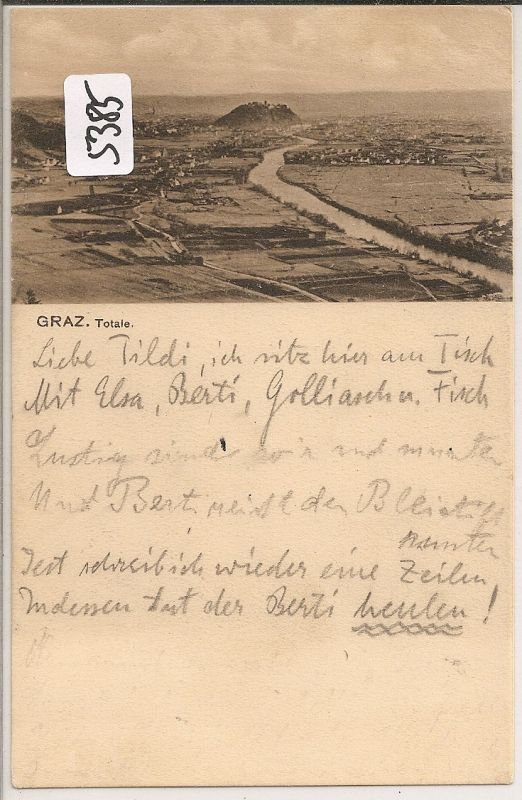 5385
GRAZ. Totale.
Liebe Tildi, ich sitz hier am Tisch
Mit Elsa, Berti, Golliasch u. Fisch
Lustig sind wir und munter
Und Berti reißt den Bleistift
runter
Jest schreib ich wieder eine Zeilen
Indessen tut der Berti heulen!